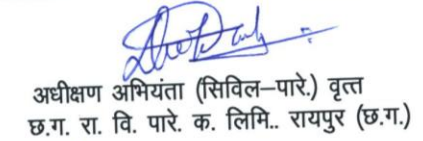 अधीक्षण अभियंता (सिविल–पारे.) वृत्त
छ.ग. रा. वि. पारे. क. लिमि.. रायपुर (छ.ग.)